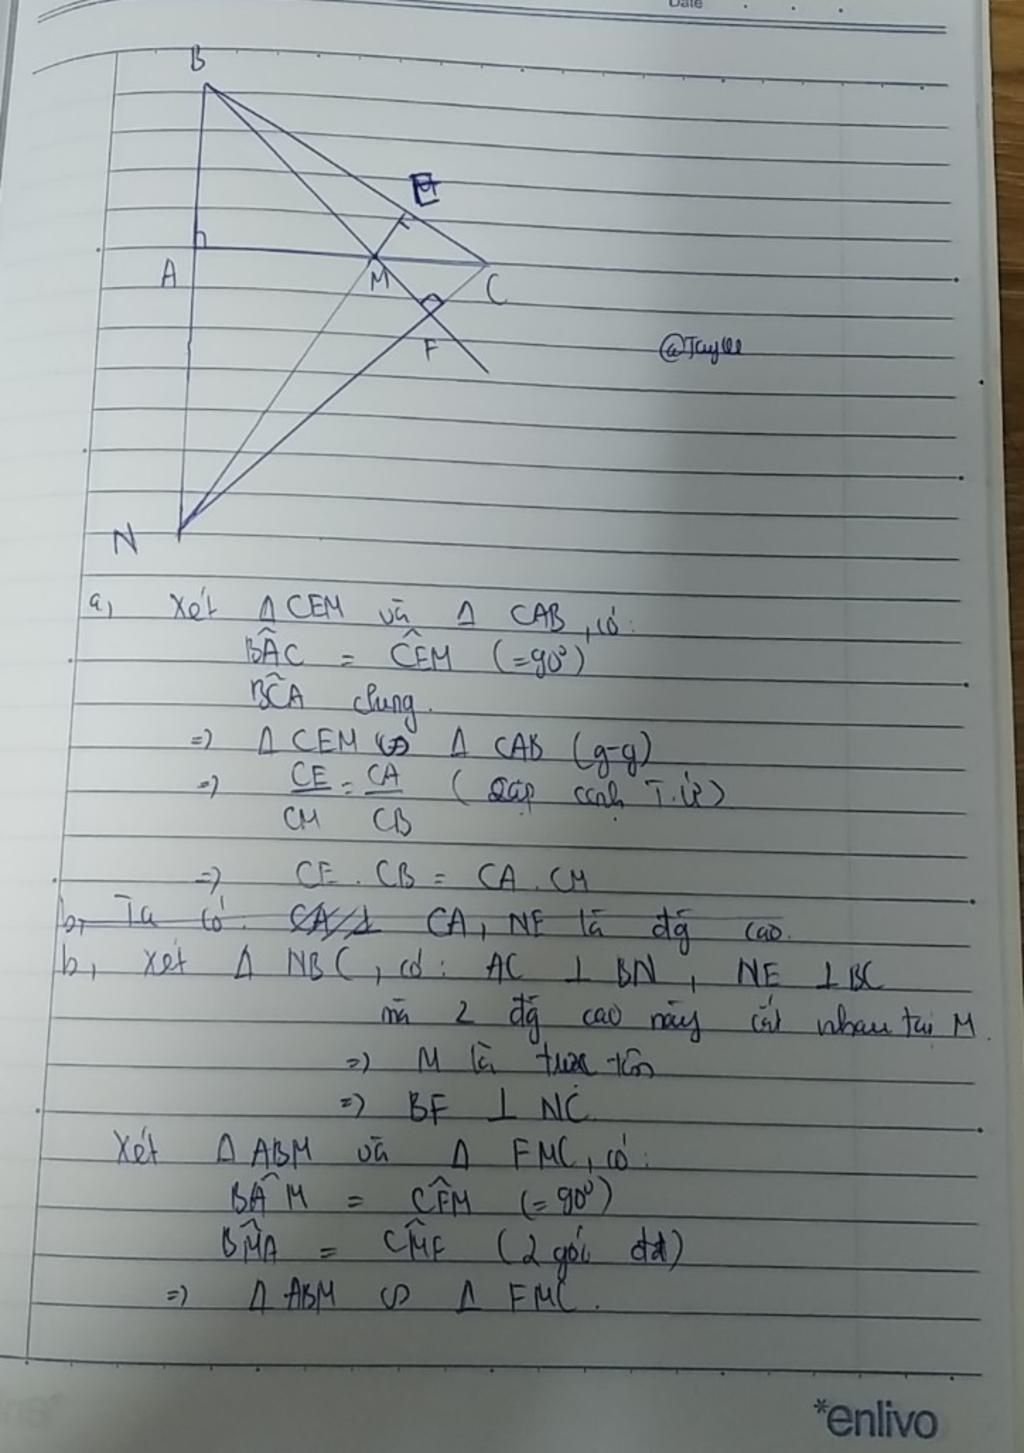 Date
B
E
A
M
C
F
@Tayll
N
a, Xét Δ CEM và Δ CAB, có:
BÂC = CÊM (=90°)
BĈA chung.
=> Δ CEM ∽ Δ CAB (g-g)
=> CE/CM = CA/CB (cặp cạnh T.Ứ)
=> CE . CB = CA . CM
b, Ta có: CA, NE là đg cao.
b, Xét Δ NBC, có: AC ⊥ BN, NE ⊥ BC
mà 2 đg cao này cắt nhau tại M.
=> M là trực tâm
=> BF ⊥ NC
Xét Δ ABM và Δ FMC, có:
BÂM = CF̂M (=90°)
BM̂A = CM̂F (2 góc đđ)
=> Δ ABM ∽ Δ FMC.
*enlivo